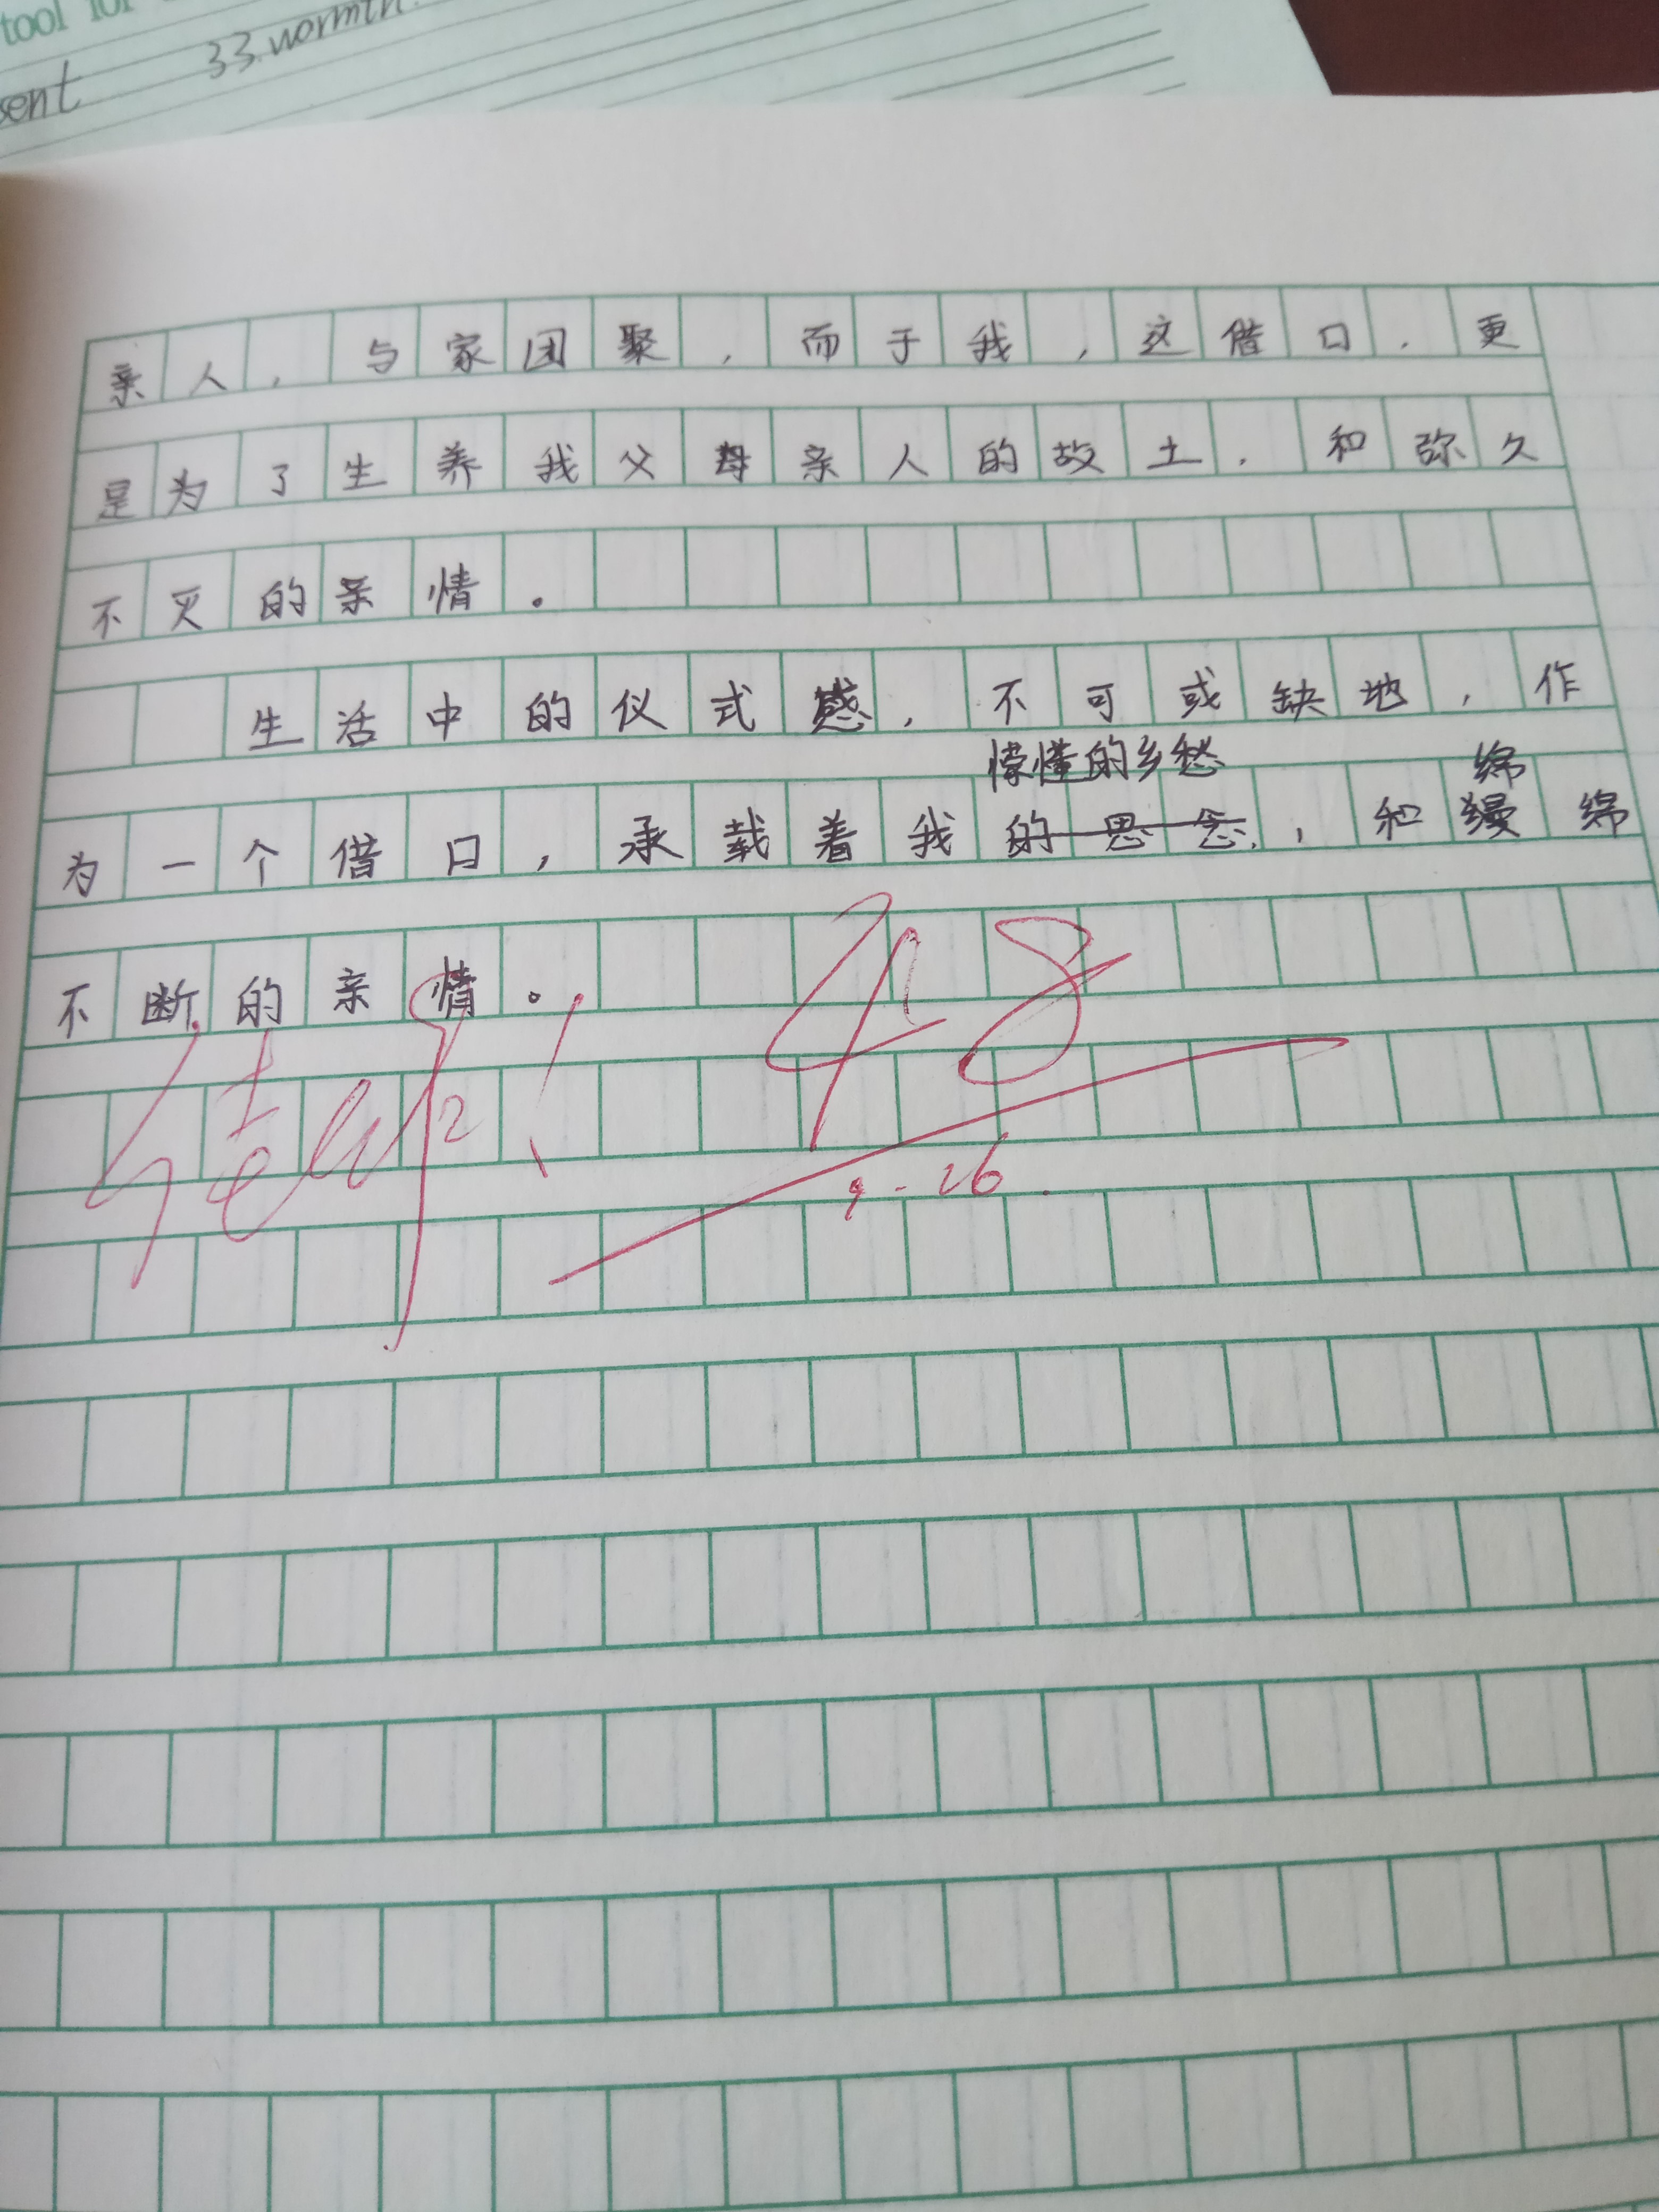 tool for
sent 33.wormth.
亲人，与家团聚，而于我，这借口，更
是为了生养我父母亲人的故土，和弥久
不灭的亲情。
生活中的仪式感，不可或缺地，作
懵懂的乡愁 绵
为一个借口，承载着我的思念，和缦绵
不断的亲情。
48
9.26.